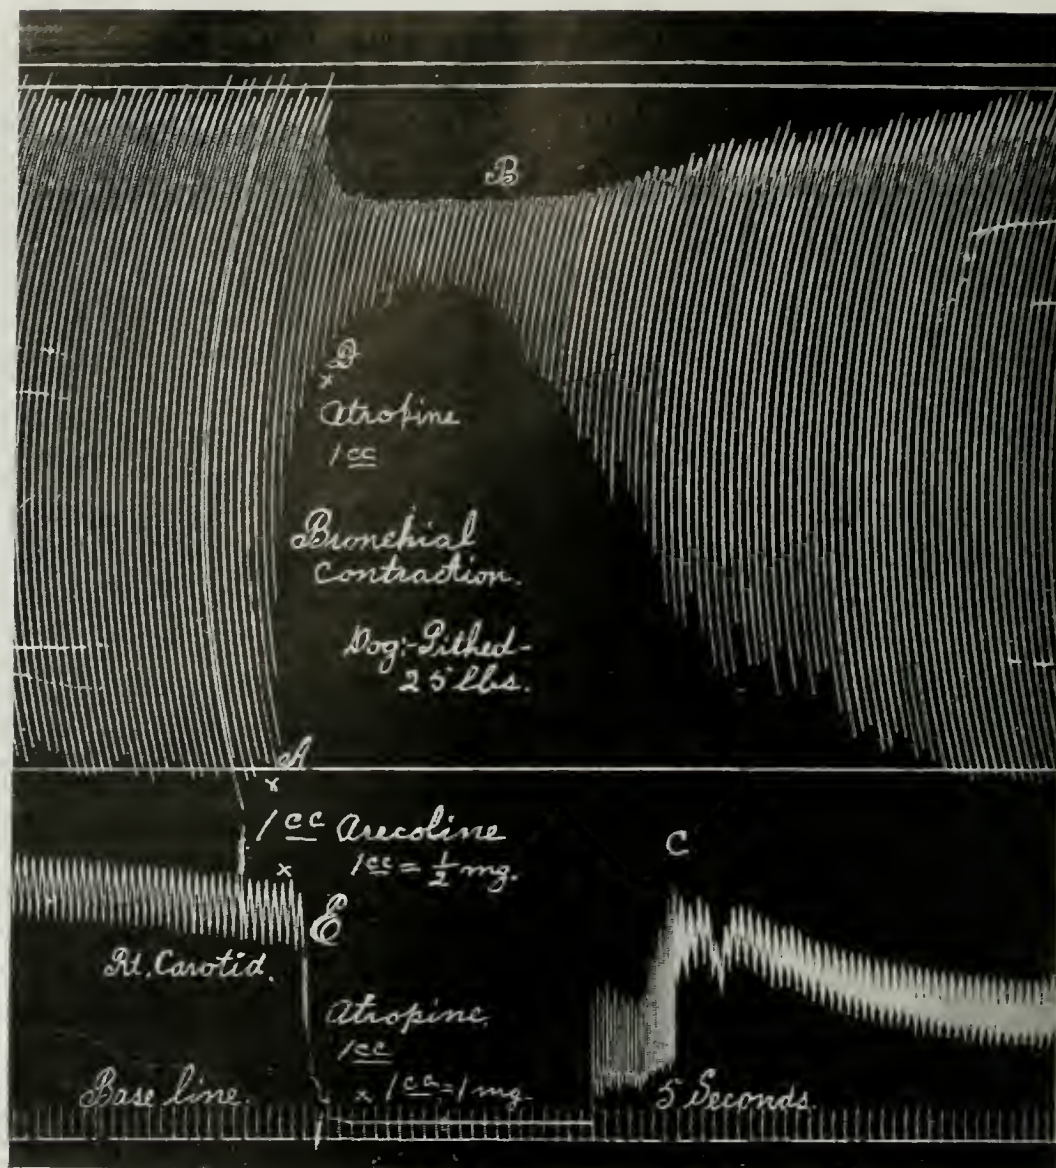 B
D
x
Atropine
1 cc
Bronchial
Contraction.
Dog:-Pithed-
25 lbs.
A
x
1 cc Arecoline
x 1 cc = 1/2 mg.
C
E
Rt. Carotid.
Atropine
1 cc
x 1 cc = 1 mg.
Base line.
5 Seconds.